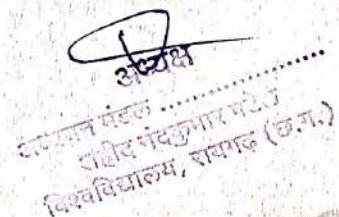 अध्यक्ष
अध्ययन मंडल ....................
शहीद नंदकुमार पटेल
विश्वविद्यालय, रायगढ़ (छ.ग.)